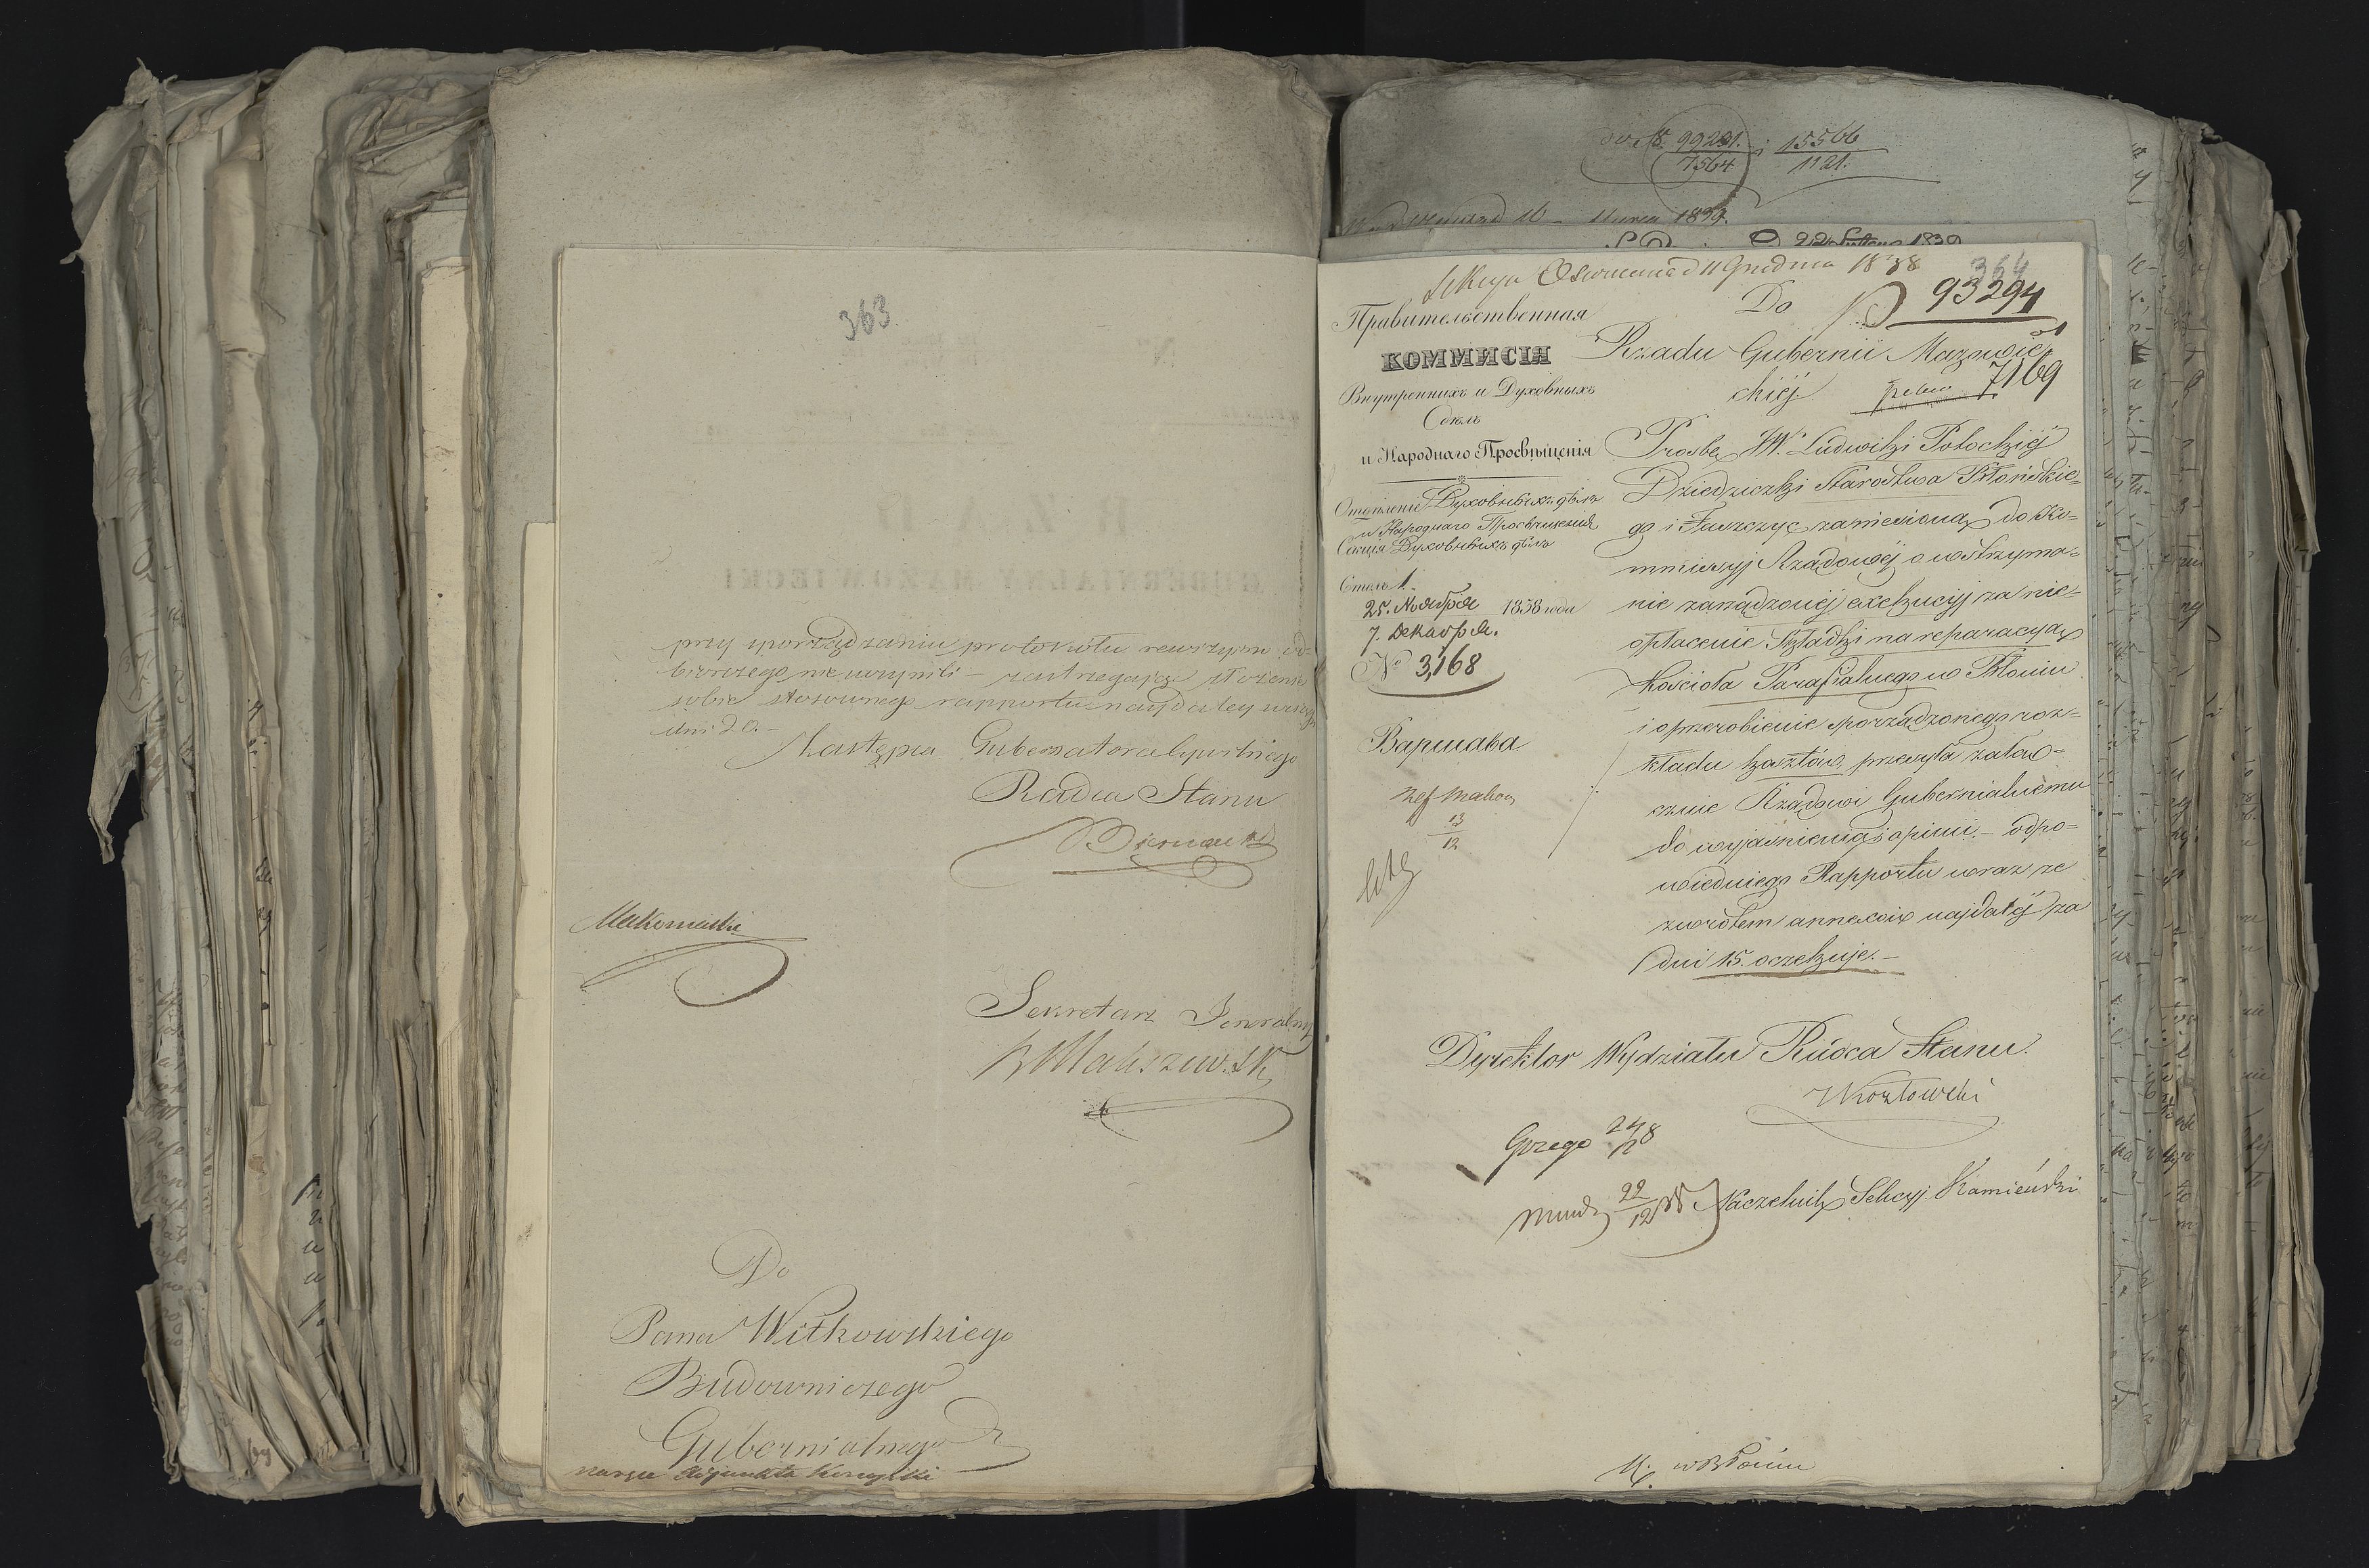 363
przy sporządzaniu protokółu rewizyino od=
biorczego nie uczynili – zastrzegając złożenie
sobie stosownego rapportu naydaley w ciągu
dni 20. –
Zastępca Gubernatora Cywilnego
Radca Stanu
Biernacki
Makomaski
Sekretarz Jeneralny
Maliszewski
Do
Pana Witkowskiego
Budowniczego
Gubernialnego
na ręce Adjunkta
99201.
7564
i 15566
1121.
16 Marca 1839.
22 Lutego 1839
Sekcya Oswiecenia d 11 Grudnia 1838
364
Do
93294
Правительственная
КОММИСІЯ
Внутреннихъ и Духовныхъ
Дѣлъ
и Народнаго Просвѣщенія
Отдѣленіе Духовныхъ дѣлъ
и Народнаго Просвѣщенія
Секція Духовныхъ дѣлъ
Столъ 1.
25. Ноября
7. Декабря.
1838 года
№ 3,168
Варшава
13
12
Rządu Gubernii Mazowie=
ckiéj
7169
Prosbę JW. Ludwiki Potockiéj
Dziedziczki Starostwa Błońskie=
go i Łaszczyc zaniesioną do Ko=
mmissyj Rządowéj o wstrzyma=
nie zarządzonéj exekucyj za nie=
opłacenie Składki na reparacyą
Kościoła Parafialnego w Błoniu
i o przerobienie sporządzonego roz=
kładu kosztów, przesyła załą=
cznie Rządowi Gubernialnemu
do wyjaśnienia i opinii. – odpo=
wiedniego Rapportu wraz ze
zwrotem annexów najdaléj za
dni 15. oczekuje. –
Dyrektor Wydziału Radca Stanu.
Kozłowski
24
12
22
12
Naczelnik Sekcyj Kamieński
w Błoniu